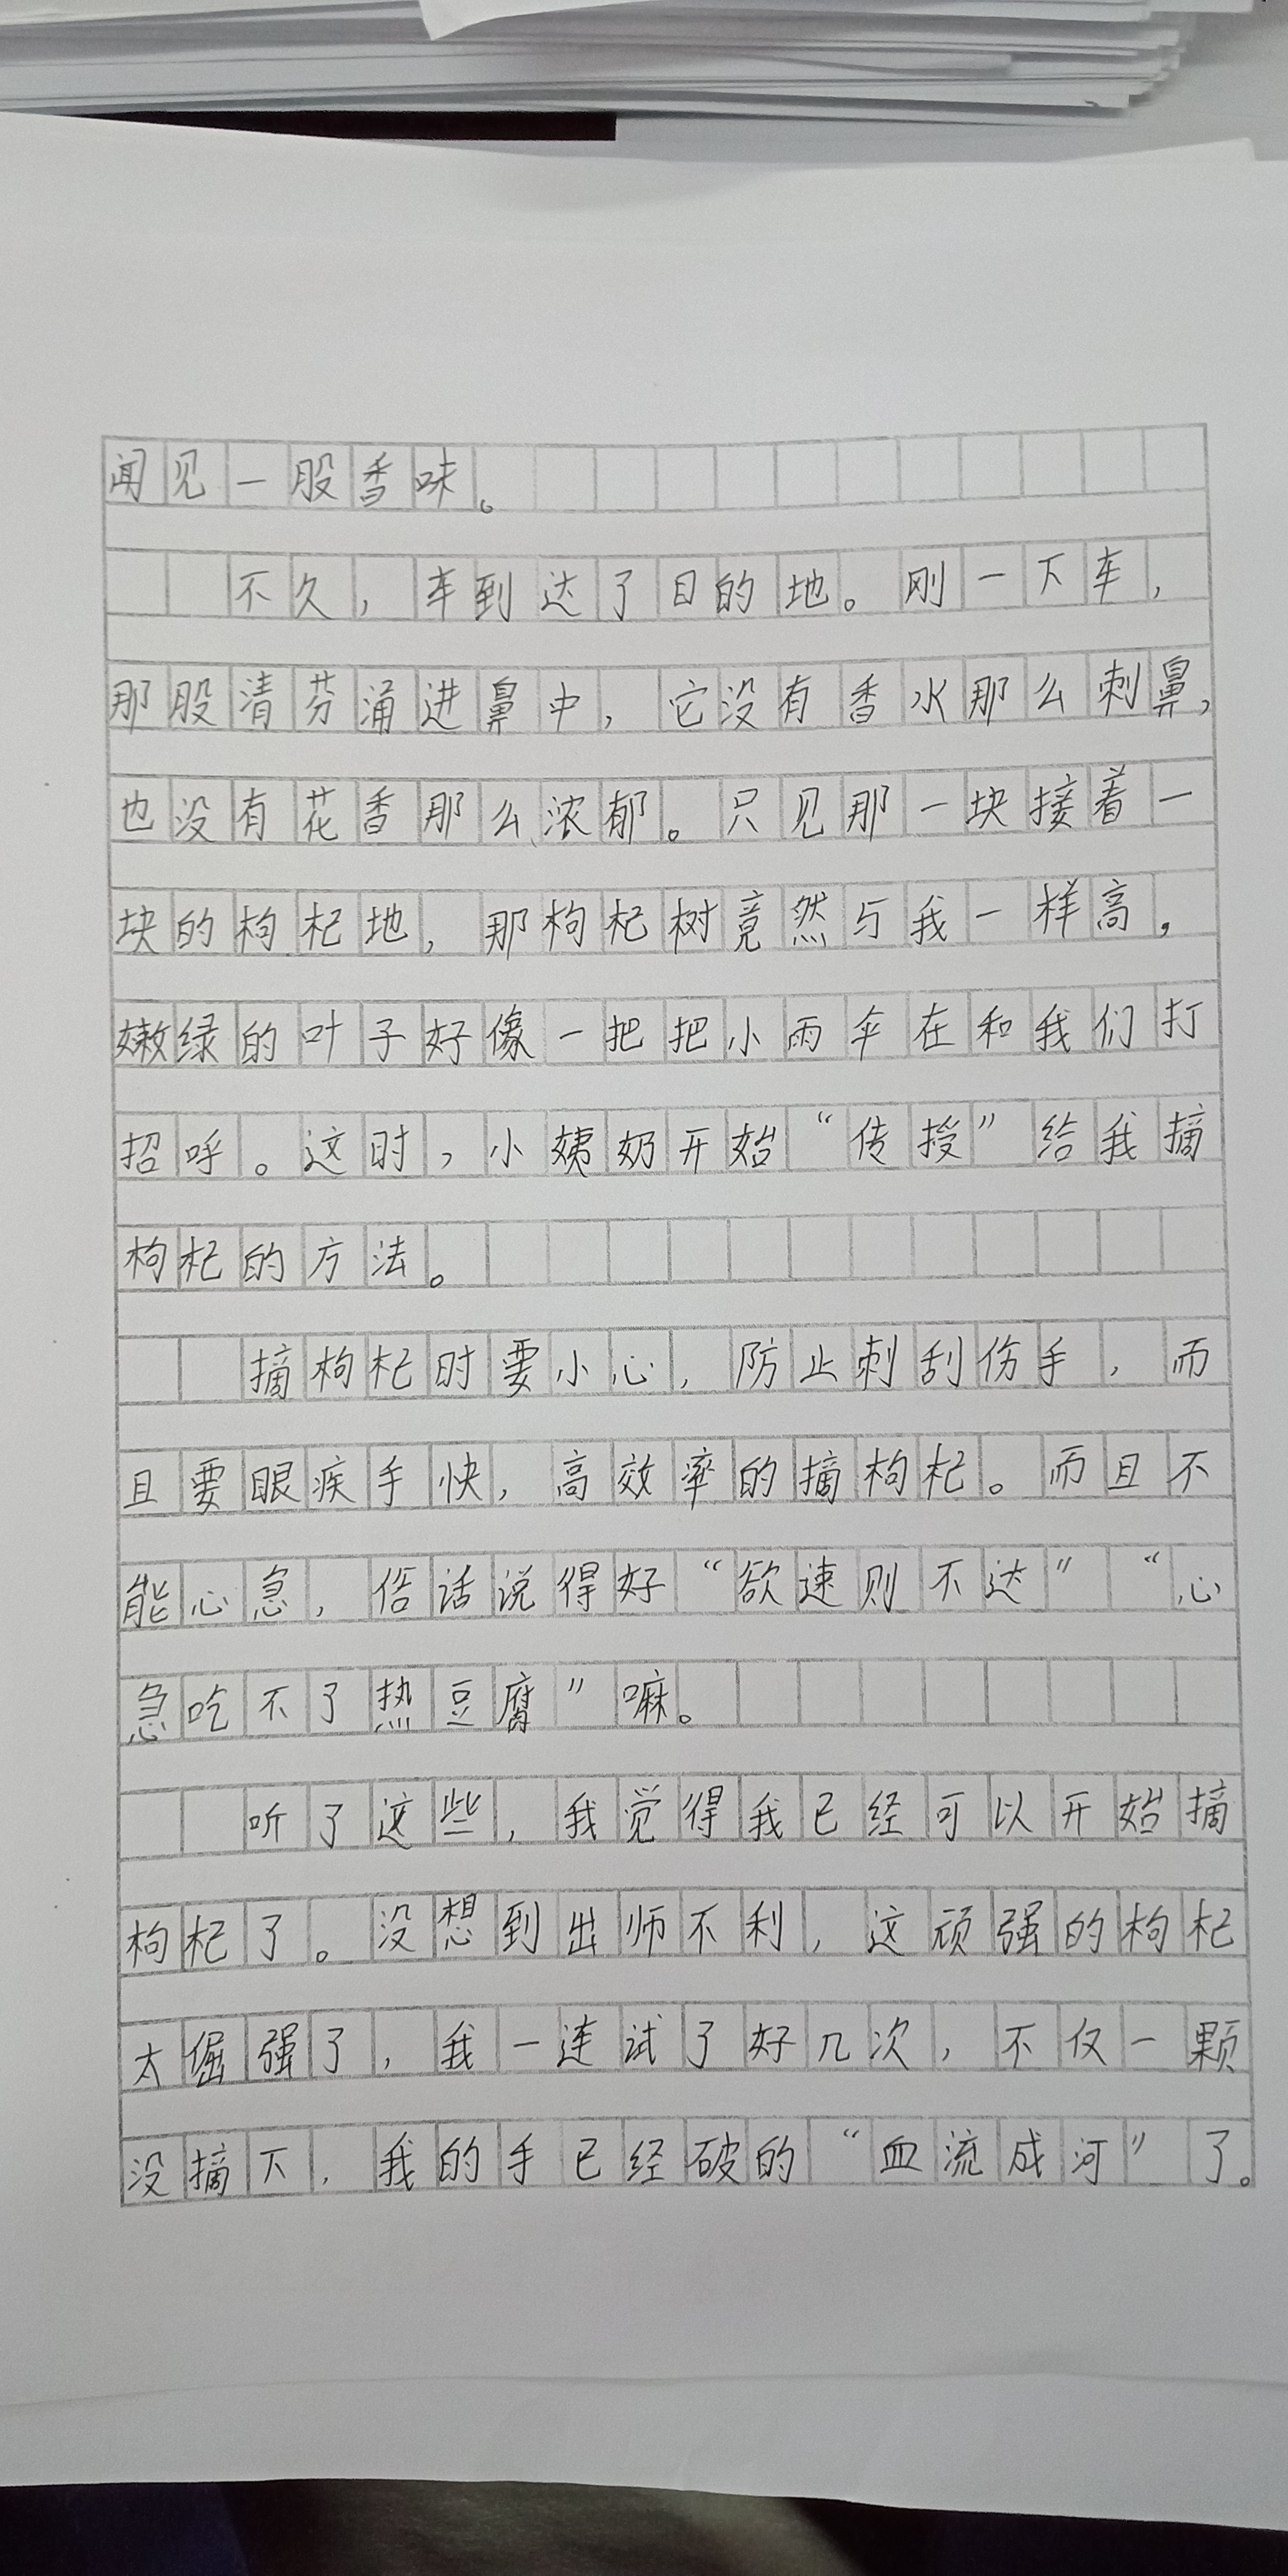 闻见一股香味。
不久，车到达了目的地。刚一下车，
那股清芬涌进鼻中，它没有香水那么刺鼻，
也没有花香那么浓郁。只见那一块接着一
块的枸杞地，那枸杞树竟然与我一样高，
嫩绿的叶子好像一把把小雨伞在和我们打
招呼。这时，小姨奶开始“传授”给我摘
枸杞的方法。
摘枸杞时要小心，防止刺刮伤手，而
且要眼疾手快，高效率的摘枸杞。而且不
能心急，俗话说得好“欲速则不达”“心
急吃不了热豆腐”嘛。
听了这些，我觉得我已经可以开始摘
枸杞了。没想到出师不利，这顽强的枸杞
太倔强了，我一连试了好几次，不仅一颗
没摘下，我的手已经破的“血流成河”了。